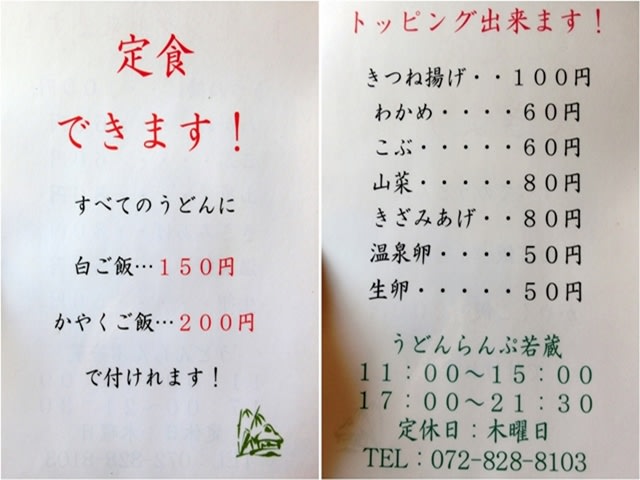 定食
できます！
すべてのうどんに
白ご飯…１５０円
かやくご飯…２００円
で付けれます！
トッピング出来ます！
きつね揚げ・・１００円
わかめ・・・・６０円
こぶ・・・・・６０円
山菜・・・・・８０円
きざみあげ・・８０円
温泉卵・・・・５０円
生卵・・・・・５０円
うどんらんぷ若蔵
１１：００〜１５：００
１７：００〜２１：３０
定休日：木曜日
TEL：072-828-8103